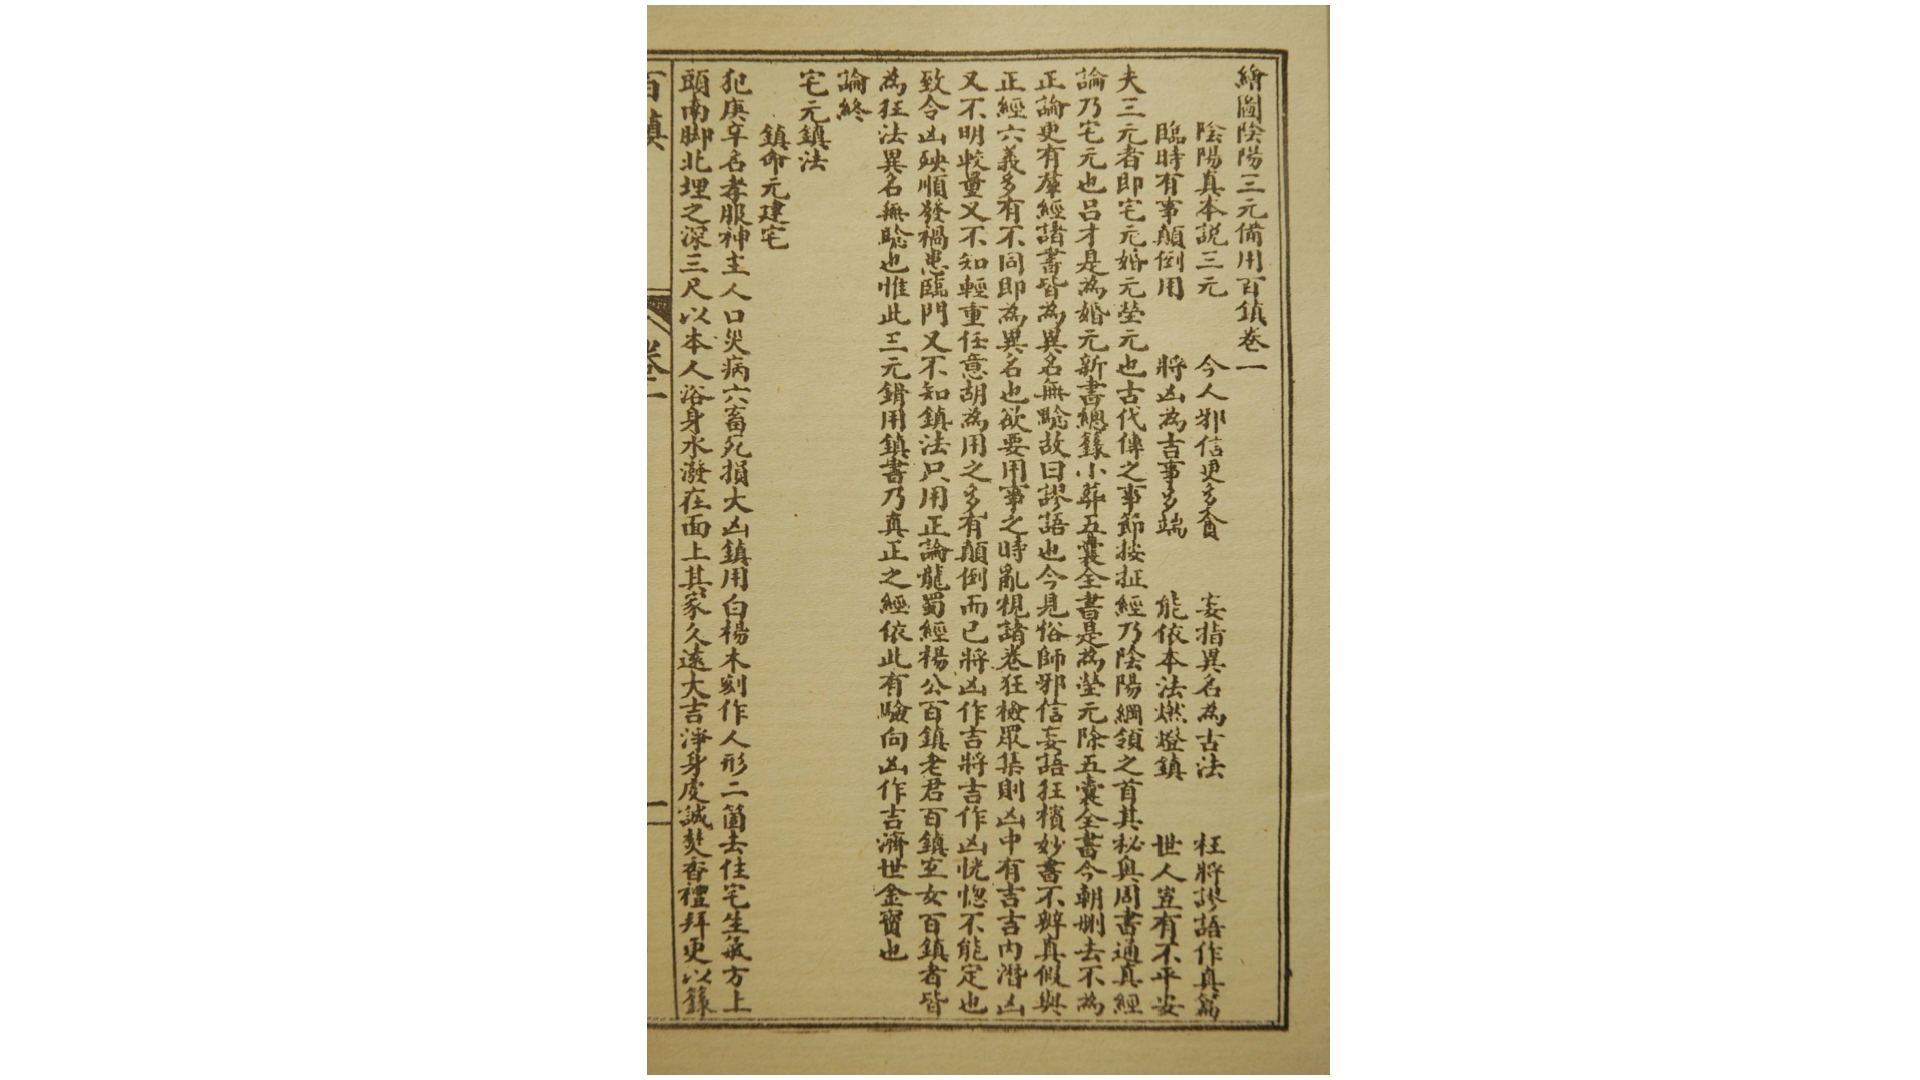 繪圖陰陽三元備用百鎮卷一
陰陽真本説三元 今人邪信更多貪 妄指異名為古法 枉將謬語作真篇
臨時有事顛倒用 將凶為吉事多端 能依本法燃燈鎮 世人豈有不平安
夫三元者即宅元婚元塋元也古代傳之事節按㧀經乃陰陽綱領之首其秘奥周書通真經
論乃宅元也吕才是為婚元新書總籙小葬五囊全書是為塋元除五囊全書今朝删去不為
正論更有羣經諸書皆為異名無驗故曰謬語也今見俗師邪信妄語狂檳妙書不辨真假與
正經六義多有不同即為異名也欲要用事之時亂視諸卷狂檢眾集則凶中有吉吉内潛凶
又不明較量又不知輕重任意胡為用之多有顛倒而已將凶作吉將吉作凶恍惚不能定也
致令凶殃順發禍患臨門又不知鎮法只用正論龍蜀經楊公百鎮老君百鎮玄女百鎮者皆
為狂法異名無驗也惟此三元鐕用鎮書乃真正之經依此有驗向凶作吉濟世金寳也
論終
宅元鎮法
鎮命元建宅
犯庚辛名孝服神主人口災病六畜死損大凶鎮用白楊木刻作人形二箇去住宅生氣方上
頭南脚北埋之深三尺以本人浴身水潑在面上其家久遠大吉淨身虔誠焚香禮拜更以籙
百鎮 卷一 一